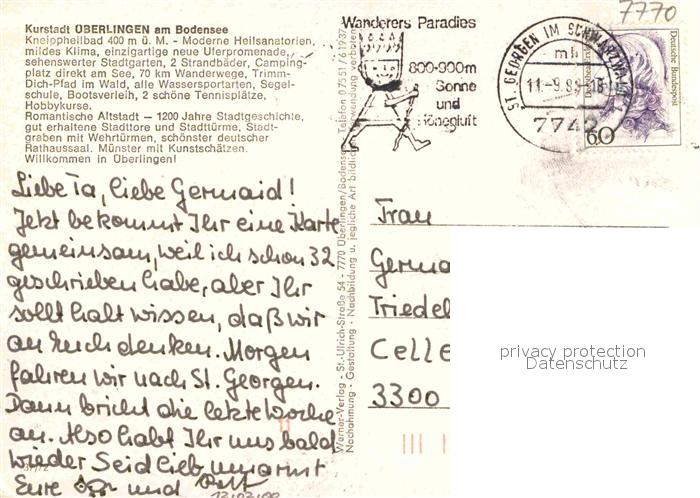 7770
Kurstadt ÜBERLINGEN am Bodensee
Kneippheilbad 400 m ü. M. - Moderne Heilsanatorien,
mildes Klima, einzigartige neue Uferpromenade,
sehenswerter Stadtgarten, 2 Strandbäder, Camping-
platz direkt am See, 70 km Wanderwege, Trimm-
Dich-Pfad im Wald, alle Wassersportarten, Segel-
schule, Bootsverleih, 2 schöne Tennisplätze,
Hobbykurse.
Romantische Altstadt — 1200 Jahre Stadtgeschichte,
gut erhaltene Stadttore und Stadttürme, Stadt-
graben mit Wehrtürmen, schönster deutscher
Rathaussaal. Münster mit Kunstschätzen.
Willkommen in Überlingen!
Liebe Ta, liebe Germaid!
Jetzt bekommt Ihr eine Karte
gemeinsam, weil ich schon 32
geschrieben habe, aber Ihr
sollt halt wissen, daß wir
an Euch denken. Morgen
fahren wir nach St. Georgen.
Dann bricht die letzte Woche
an. Also habt Ihr uns bald
wieder Seid lieb umarmt
Eure und
Werner-Verlag - St.-Ulrich-Straße 54 - 7770 Überlingen/Bodensee Telefon 07551/61937
Nachahmung - Gestaltung - Nachbildung u. jegliche Art bildlicher verboten
Wanderers Paradies
800-900m
Sonne
und
Höhenluft
ST. GEORGEN IM SCHWARZWALD
mb
11.-9.8 -18
7742
Deutsche Bundespost
60
Frau
Germa
Triedel
Celle
3300
privacy protection
Datenschutz